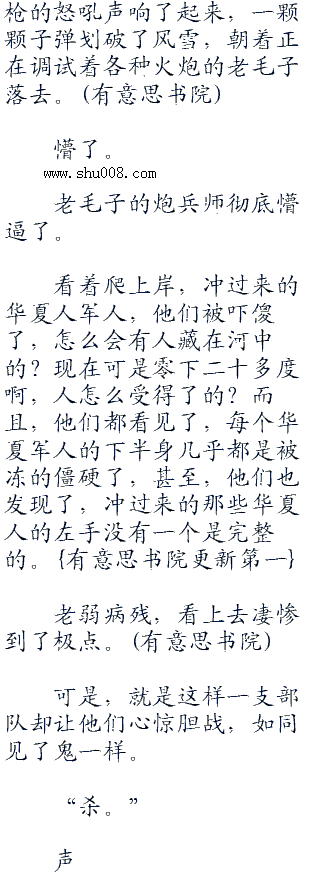 枪的怒吼声响了起来，一颗
颗子弹划破了风雪，朝着正
在调试着各种火炮的老毛子
落去。(有意思书院)
懵了。
www.shu008.com
老毛子的炮兵师彻底懵
逼了。
看着爬上岸，冲过来的
华夏人军人，他们被吓傻
了，怎么会有人藏在河中
的？现在可是零下二十多度
啊，人怎么受得了的？而
且，他们都看见了，每个华
夏军人的下半身几乎都是被
冻的僵硬了，甚至，他们也
发现了，冲过来的那些华夏
人的左手没有一个是完整
的。{有意思书院更新第一}
老弱病残，看上去凄惨
到了极点。(有意思书院)
可是，就是这样一支部
队却让他们心惊胆战，如同
见了鬼一样。
“杀。”
声